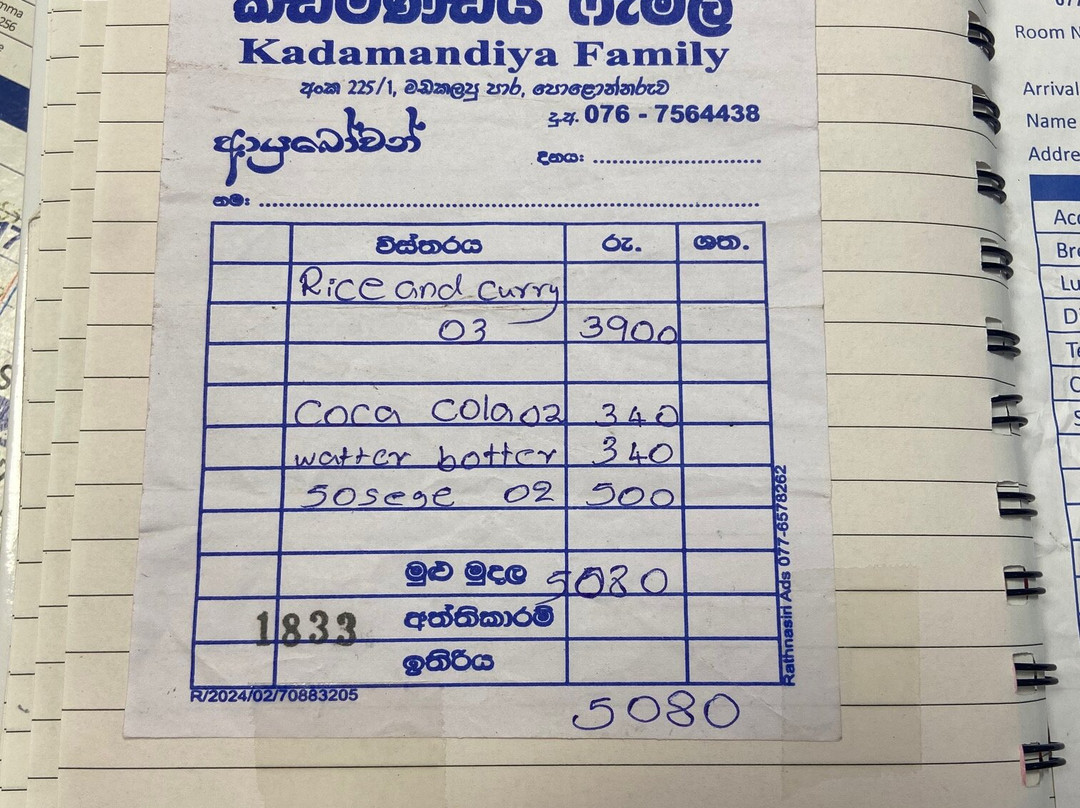 කඩමණ්ඩිය ෆැමිලි
Kadamandiya Family
අංක 225/1, මඩකලපු පාර, පොළොන්නරුව
දු.අ. 076 - 7564438
ආයුබෝවන්
දිනය:
නම:
විස්තරය රු. ශත.
Rice and curry
03 3900
Coca cola 02 340
watter botter 340
Sosege 02 500
මුළු මුදල 5080
1833 අත්තිකාරම්
ඉතිරිය
R/2024/02/70883205
5080
Rathnasiri Ads 077-6578262
256
Room N
Arrival
Name
Addre
Acc
Bre
Lu